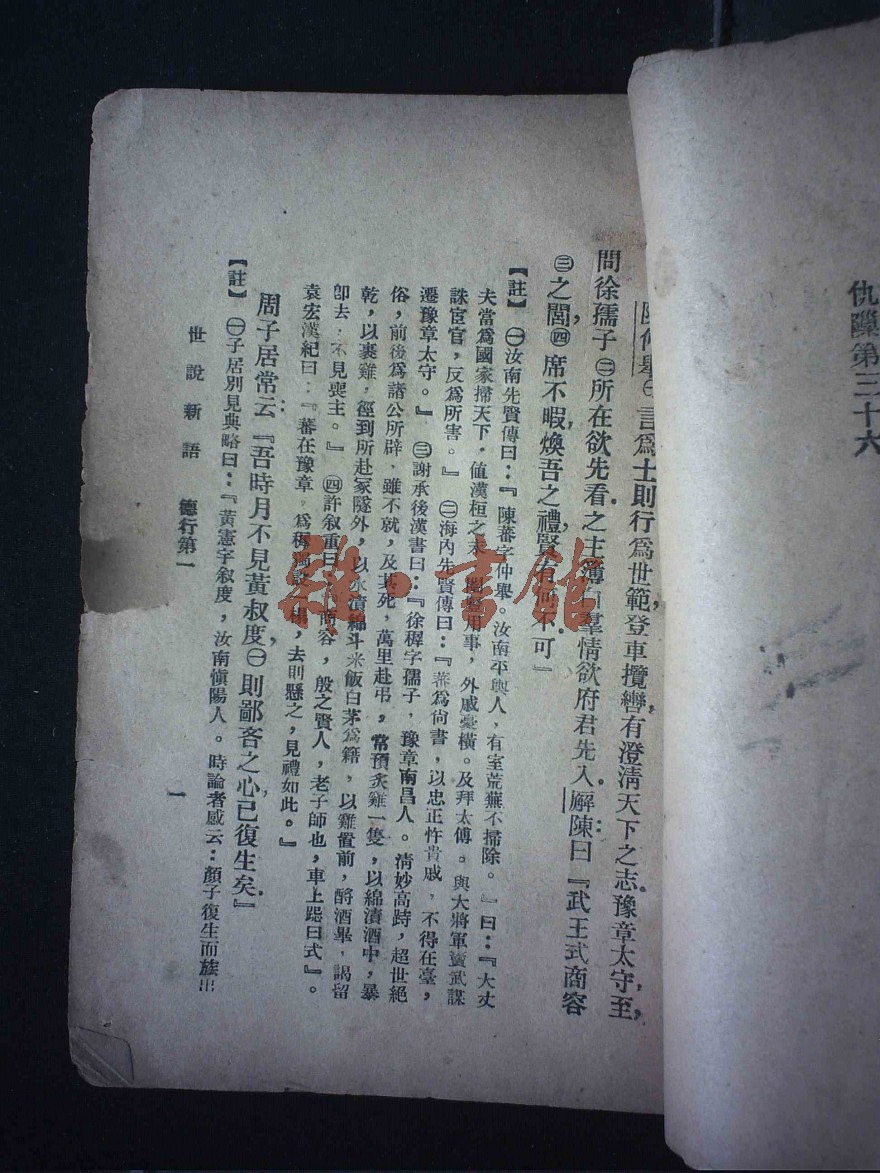 仇隟第三十六
陳仲舉㊀言爲士則行爲世範，登車攬轡有澄清天下之志．豫章太守至，
問徐孺子㊁所在欲先看之主簿白羣情欲府君先入廨．陳曰：『武王式商容
㊂之閭，㊃席不暇煖，吾之禮賢，有何不可．』
【註】㊀汝南先賢傳曰：『陳蕃字仲舉，汝南平輿人，有室荒蕪不掃除。』曰：『大丈
夫當爲國家掃天下，値漢桓之末，用事，外戚豪橫。及拜太傅。與大將軍竇武謀
誅宦官，反爲所害。』㊁海內先賢傳曰：『蕃爲尙書，以忠正忤貴戚，不得在臺，
遷豫章太守。』㊂謝承後漢書曰：『徐穉字孺子，豫章南昌人。清妙高跱，超世絕
俗，前後爲諸公所辟，雖不就，及其死，萬里赴弔，常預炙雞一隻，以綿漬酒中，暴
乾，以裹雞，徑到所赴冢隧外，以水漬綿斗米飯白茅爲籍，以雞置前，酹酒畢，謁留
卽去，不見喪主。』㊃許叔重曰：『商容，殷之賢人，老子師也，車上跽曰式』。
袁宏漢紀曰：『蕃在豫章，爲穉獨設一榻，去則懸之，見禮如此。』
周子居常云：『吾時月不見黃叔度，㊀則鄙吝之心，已復生矣．』
【註】㊀子居別見典略曰：『黃憲字叙度，汝南愼陽人。時論者咸云：顏子復生而族出
世說新語 德行第一
一
雜·書館